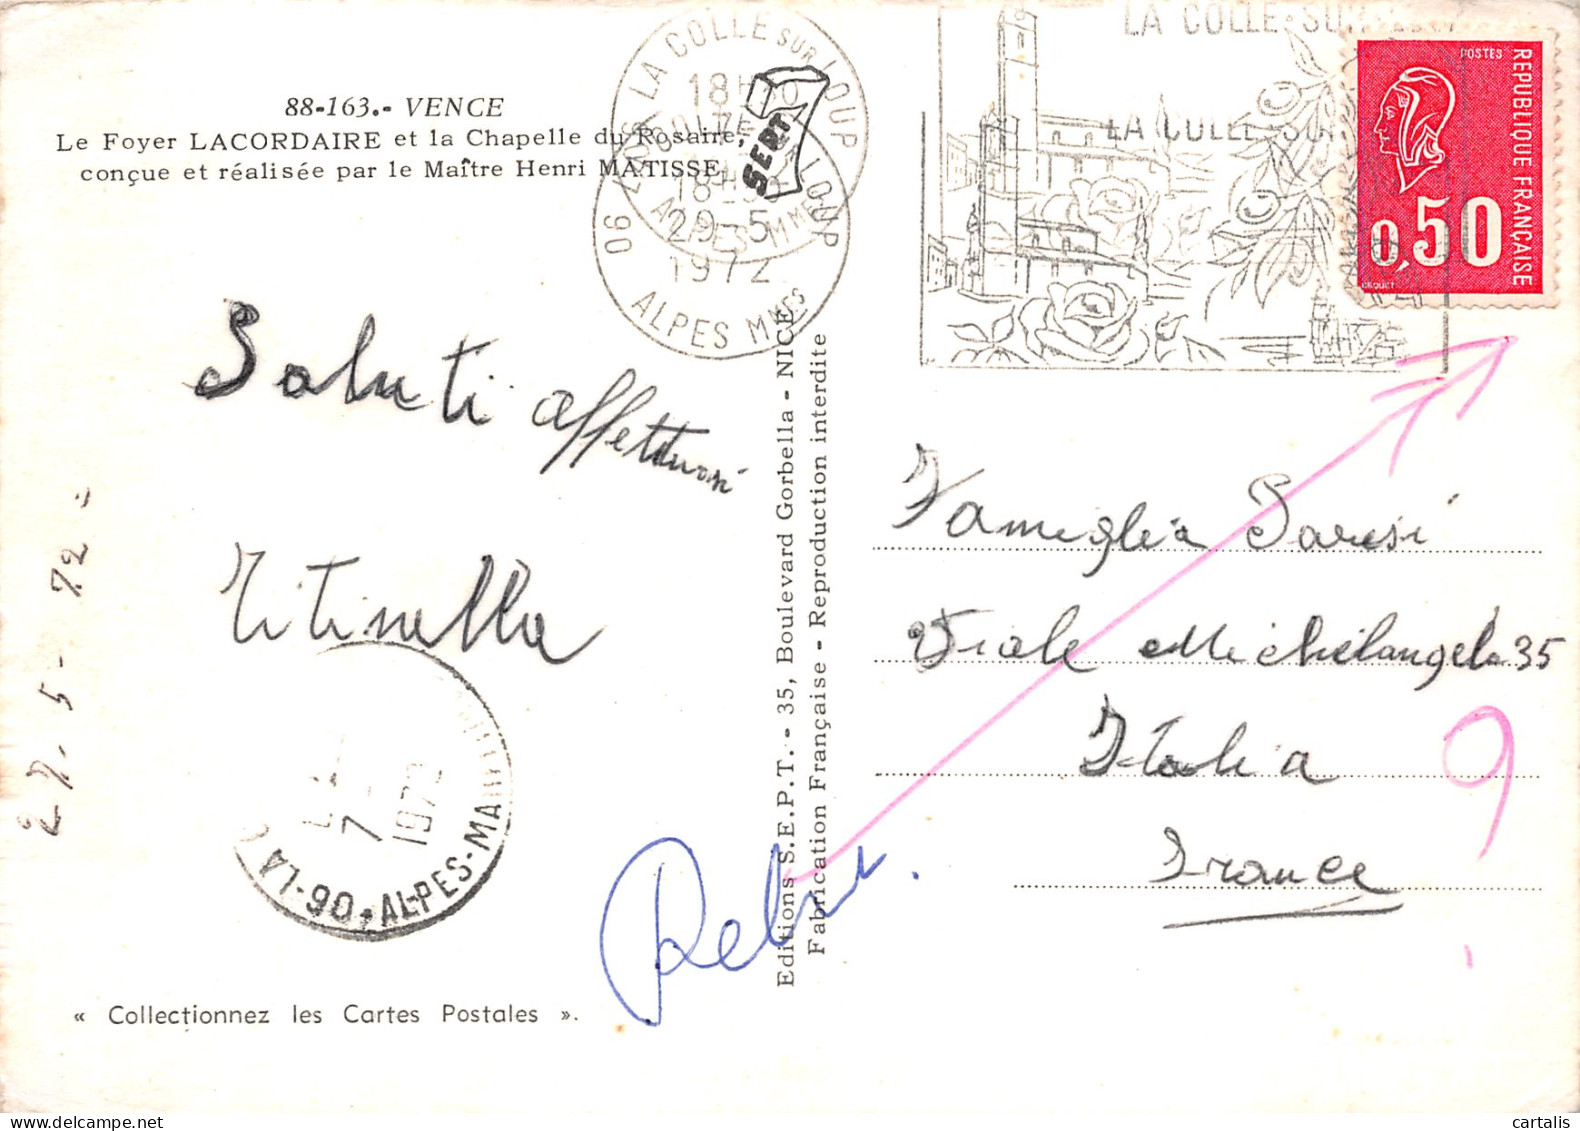 88-163.- VENCE
Le Foyer LACORDAIRE et la Chapelle du Rosaire,
conçue et réalisée par le Maître Henri MATISSE.
06 LA COLLE SUR LOUP
18H30
29-5
1972
ALPES MMES
SEPT
LA COLLE SUR LOUP
LA COLLE SUR
POSTES
REPUBLIQUE FRANÇAISE
0,50
BEQUET
Saluti affettuosi
Titinella
27.5-72=
Editions S.E.P.T. - 35, Boulevard Gorbella - NICE
Fabrication Française - Reproduction interdite
Famiglia Paresi
Viale Michelangelo 35
Italia
France
?
7
1972
06-ALPES-MARITIMES
« Collectionnez les Cartes Postales ».
cartalis